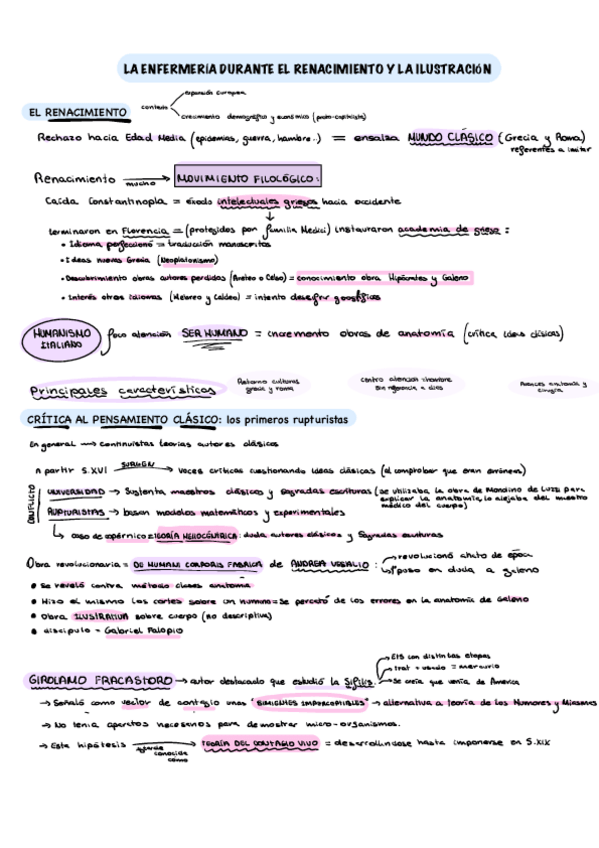 LA ENFERMERÍA DURANTE EL RENACIMIENTO Y LA ILUSTRACIÓN
EL RENACIMIENTO
contexto
expansión europea
crecimiento demográfico y económico (proto-capitalista)
Rechazo hacia Edad Media (epidemias, guerra, hambre..) = ensalza MUNDO CLÁSICO (Grecia y Roma)
referentes a imitar
Renacimiento mucho → MOVIMIENTO FILOLÓGICO:
Caída Constantinopla = éxodo intelectuales griegos hacia occidente
↓
terminaron en Florencia = (protegidos por familia Medici) instauraron academia de griego:
• Idioma perfeccionó = traducción manuscritos
• Ideas nuevas Grecia (Neoplatonismo)
• Descubrimiento obras autores perdidas (Areteo o Celso) = conocimiento obra Hipócrates y Galeno
• Interés otros idiomas (Hebreo y Caldeo) = intento
HUMANISMO ITALIANO foco atención SER HUMANO = incremento obras de anatomía (crítica ideas clásicas)
Principales características
Retorno culturas grecia y roma
Centro atención = hombre sin referencia a dios
Avances anatomía y cirugía
CRÍTICA AL PENSAMIENTO CLÁSICO: los primeros rupturistas
En general → continuistas teorías autores clásicos
A partir S.XVI SURGEN → voces críticas cuestionando ideas clásicas (al comprobar que eran erróneas)
CONFLICTO
UNIVERSIDAD → Sustenta maestros clásicos y sagradas escrituras (se utilizaba la obra de Mondino de Luzzi para explicar la anatomía, lo alejaba del maestro médico del cuerpo)
RUPTURISTAS → basan modelos matemáticos y experimentales
↳ caso de copérnico = TEORÍA HELIOCÉNTRICA: duda autores clásicos y Sagradas escrituras
Obra revolucionaria = DE HUMANI CORPORIS FABRICA de ANDREA VESALIO:
revolucionó ámbito de época
puso en duda a galeno
• Se reveló contra método clases anatomía
• Hizo el mismo los cortes sobre un humano = Se percató de los errores en la anatomía de Galeno
• Obra ILUSTRATIVA sobre cuerpo (no descriptiva)
• discípulo = Gabriel Falopio
GIROLAMO FRACASTORO → autor destacado que estudió la Sífilis.
ETS con distintas etapas
trat + usado = mercurio
Se creía que venía de América
→ Señaló como vector de contagio unas "SIMIENTES IMPERCEPTIBLES" → alternativa a teoría de los Humores y Miasmas
→ No tenía aparatos necesarios para demostrar micro-organismos.
→ Esta hipótesis conocida como → TEORÍA DEL CONTAGIO VIVO = desarrollándose hasta imponerse en S.XIX